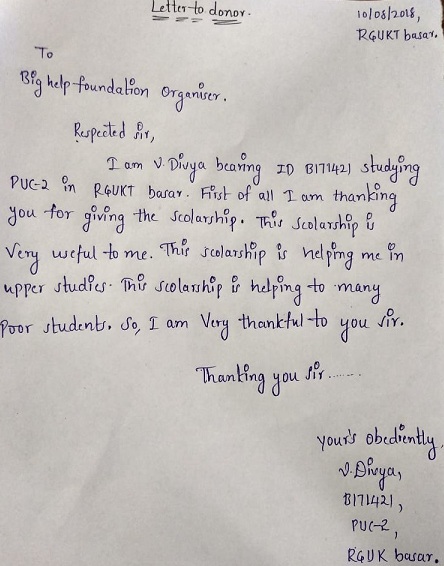 Letter to donor.
10/08/2018,
RGUKT basar.
To
Big help foundation Organiser.
Respected Sir,
I am V. Divya bearing ID B171421 studying
PUC-2 in RGUKT basar. First of all I am thanking
you for giving the scolarship. This Scolarship is
Very useful to me. This scolarship is helping me in
upper studies. This scolarship is helping to many
Poor students. So, I am Very thankful to you sir.
Thanking you sir.......
your's obediently,
V. Divya,
B171421,
PUC-2,
RGUK basar.